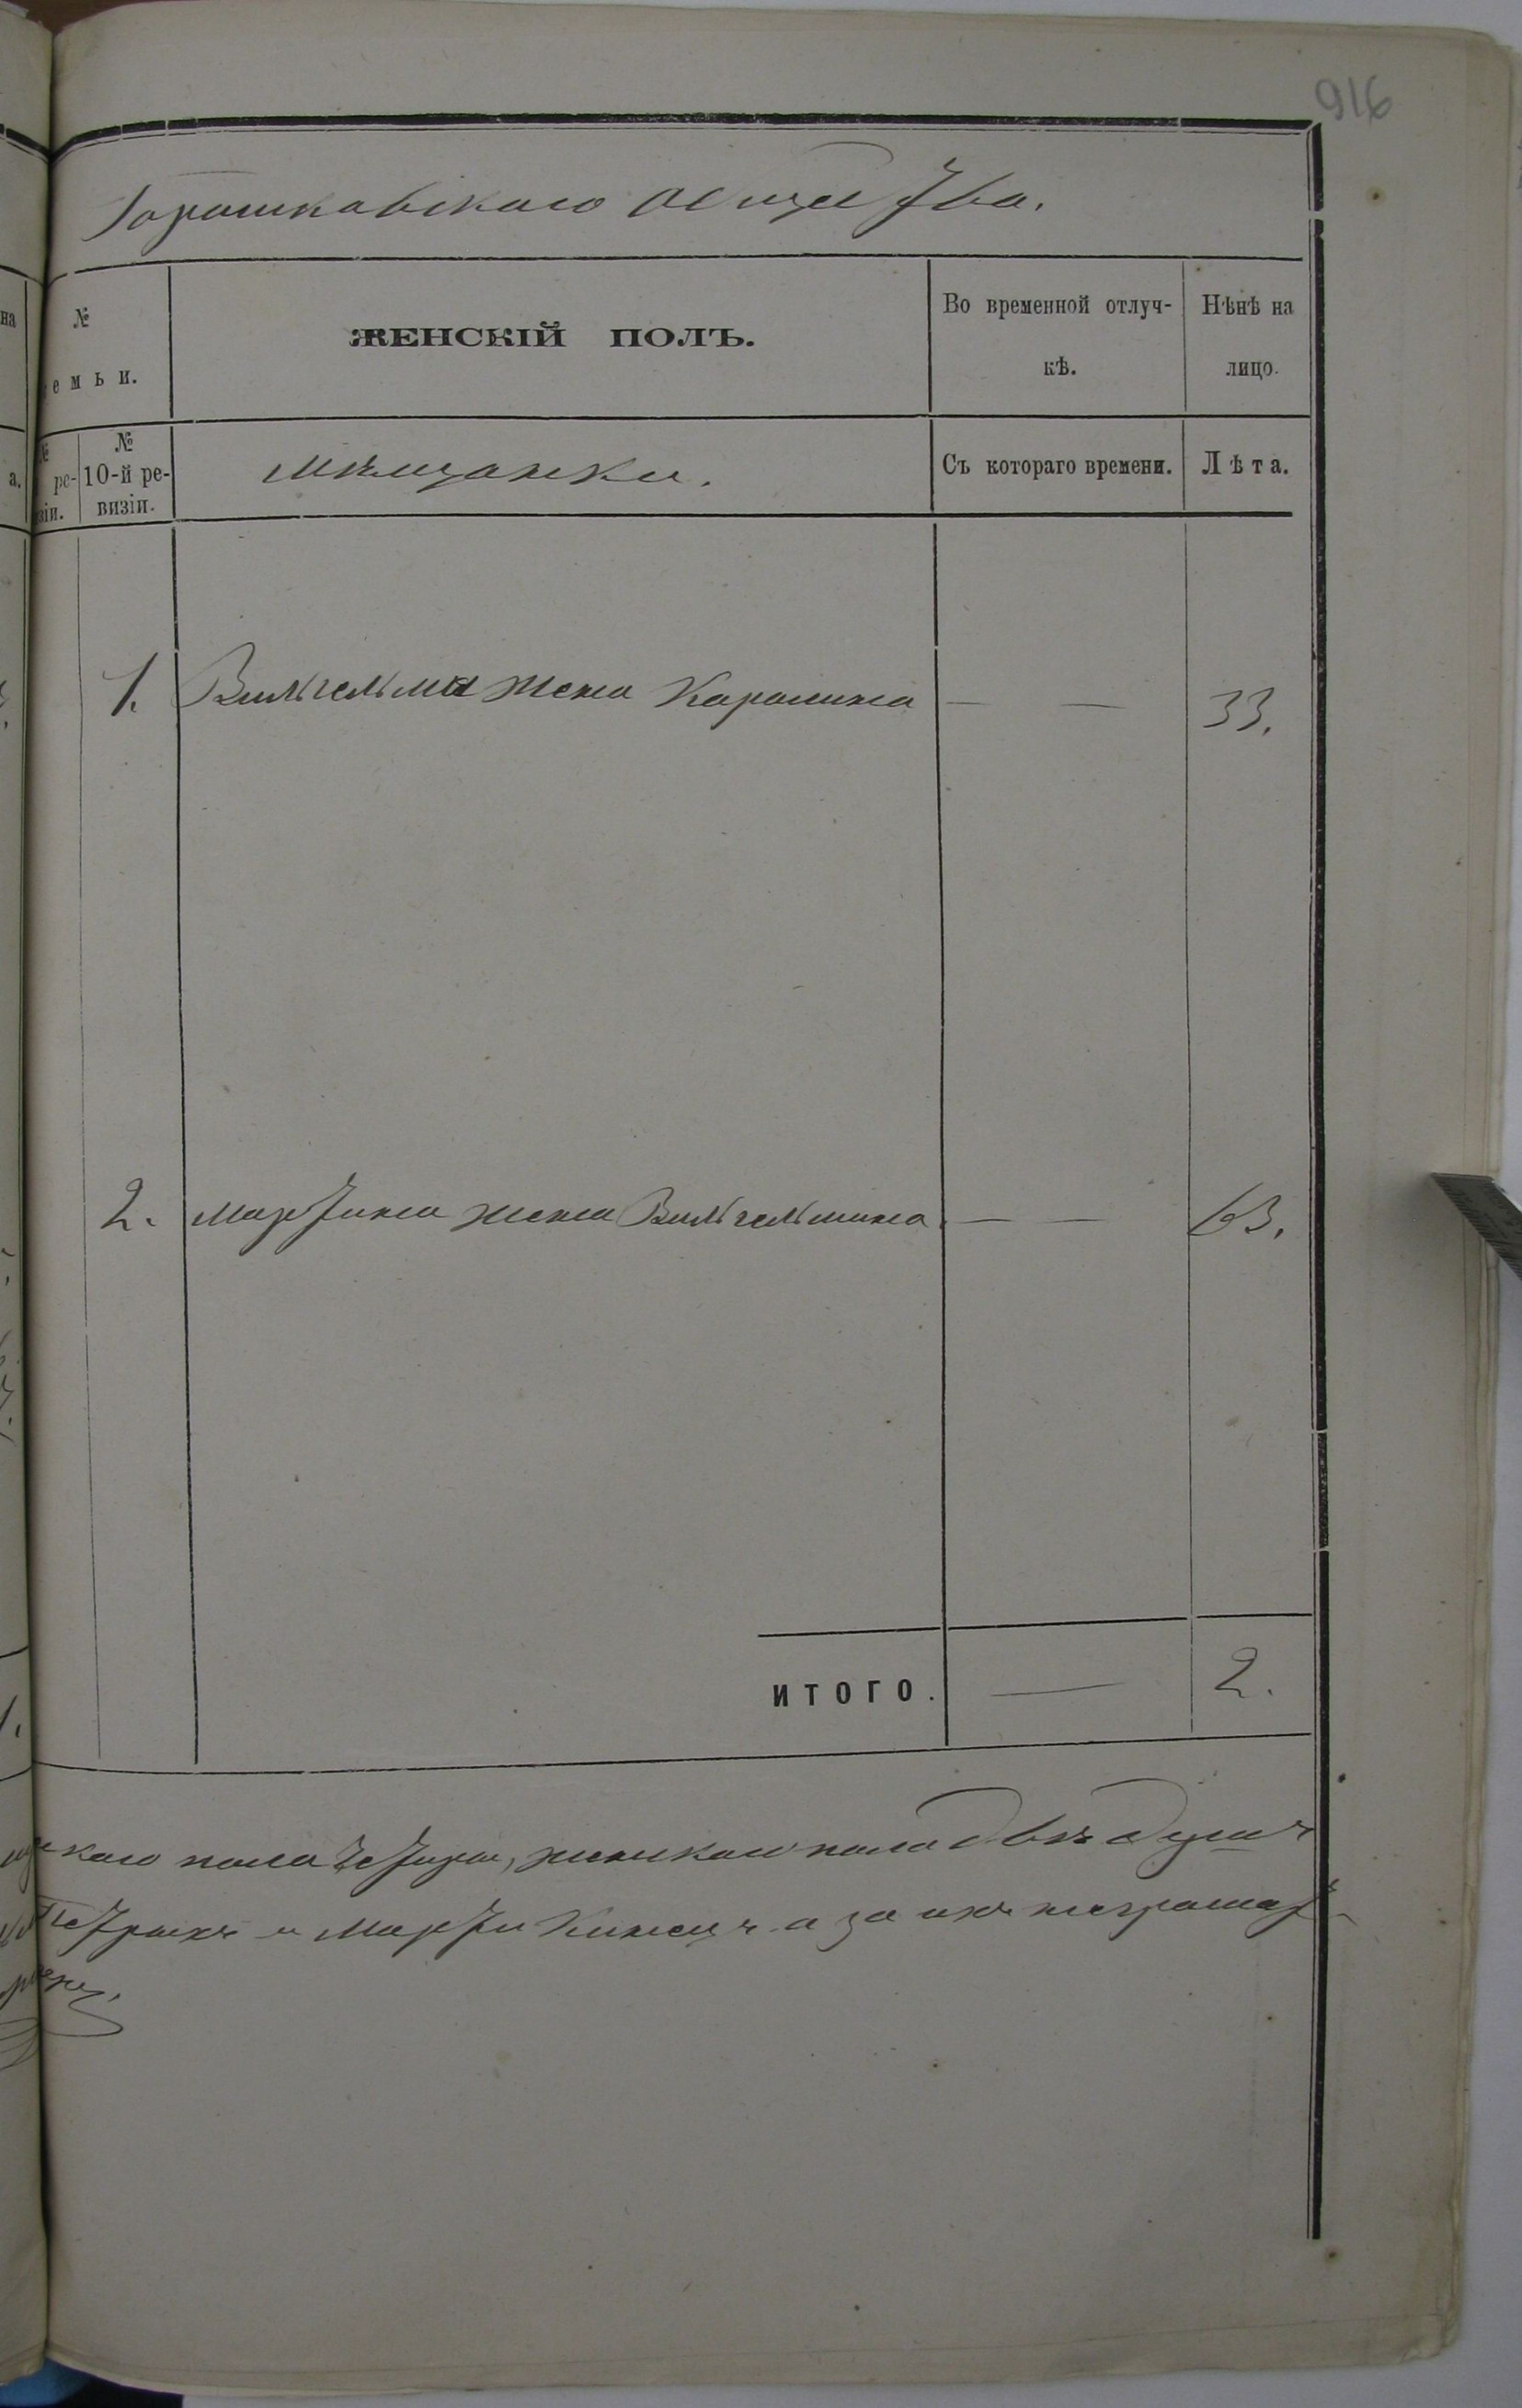 916
Горошковскаго общества.
на
№
емьи.
ЖЕНСКІЙ ПОЛЪ.
Во временной отлуч-
кѣ.
Нѣнѣ на
лицо.
а.
№
ре-
зіи.
№
10-й ре-
визіи.
Мѣщанки.
Съ котораго времени.
Лѣта.
1. Вильгельма жена Каролина — — 33.
2. Мартина жена Вильгельмина — — 63.
ИТОГО. — 2.
скаго пола четыре, женскаго пола двѣ душъ
и Мартин а за ихъ неграмот-